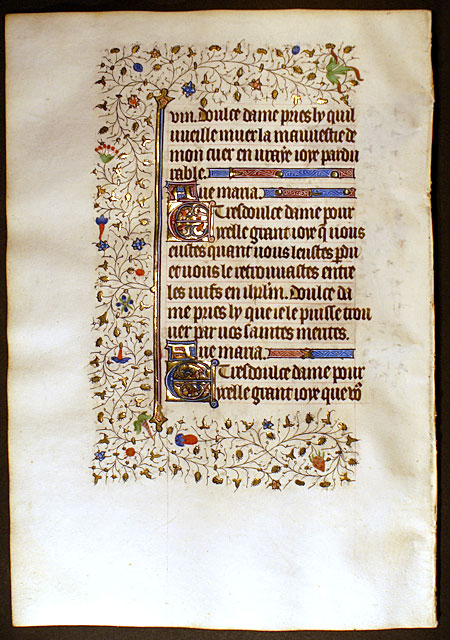 vin. Doulce dame pries ly quil
vueille muer la mauuestie de
mon cuer en vraye ioye pardu
rable.
Aue maria.
E Tresdoulce dame pour
ycelle grant ioye q̄ vous
eustes quant vous leustes p̄du
et vous le retrouuastes entre
les iuifs en ihrlm̄. Doulce da
me pries ly que ie le puisse trou
uer par vos saintes merites.
Aue maria.
E Tresdoulce dame pour
ycelle grant ioye que vo᷒